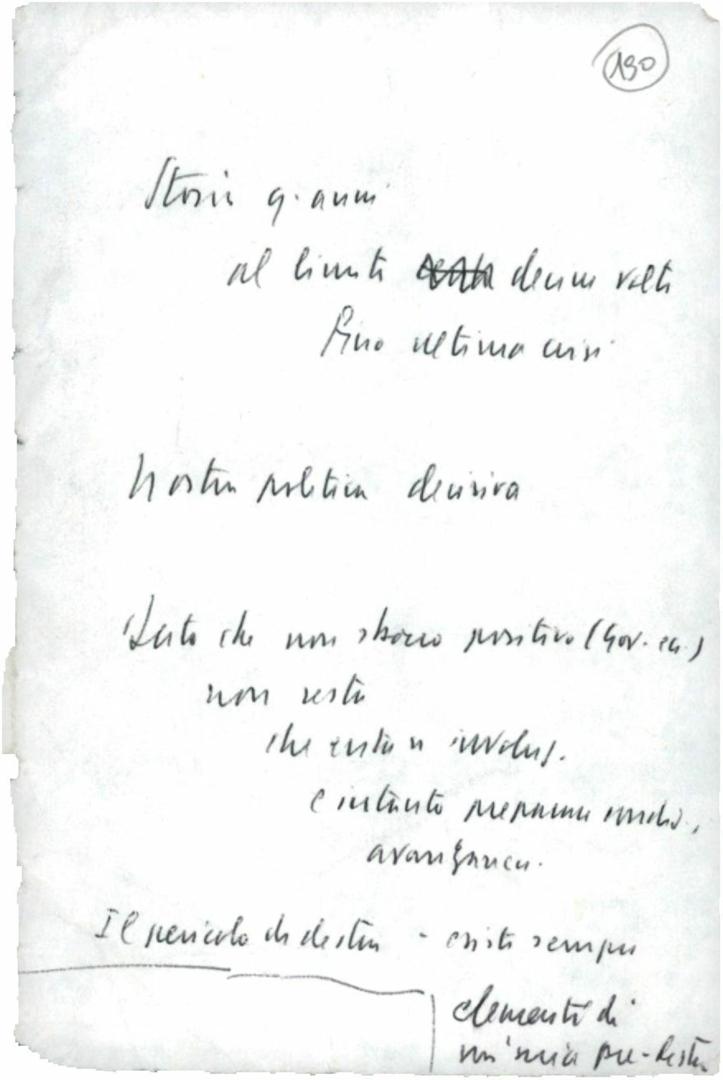 190
Storia q. anni
al limite decine volte
Fino ultima crisi
Nostra politica decisiva
Dato che non sbocco positivo (Gov. ecc.)
non resta
che evitare involuz.
e intanto preparare
avanzare
Il pericolo di destra - esiste sempre
elementi di
un'unica pre-destra